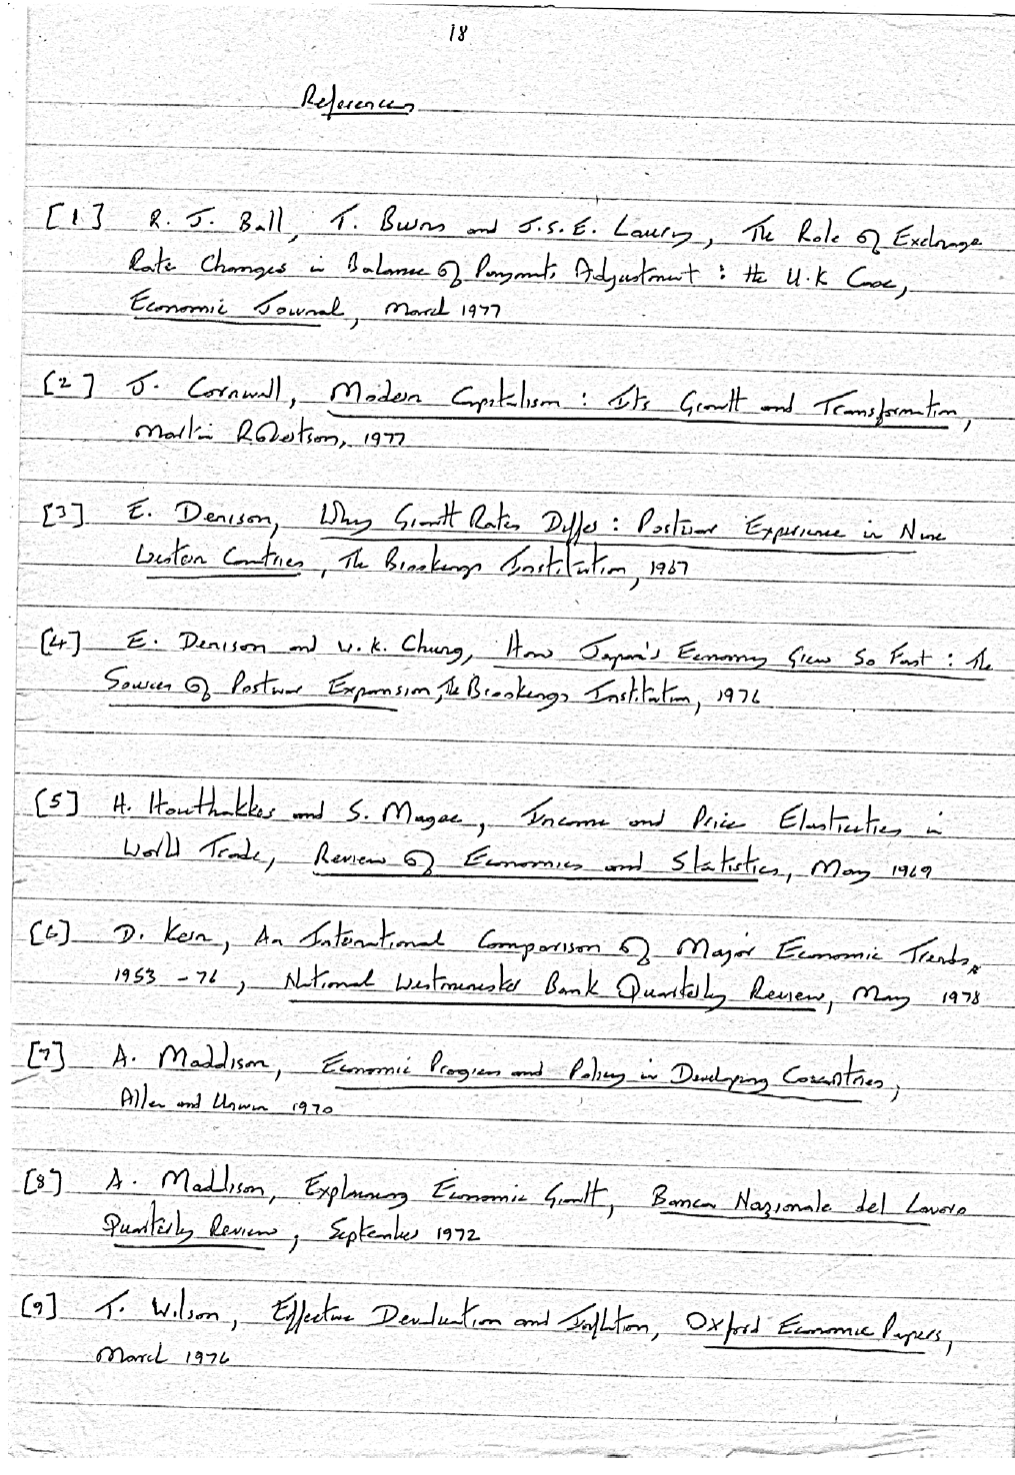 18
References
[1] R. J. Ball, T. Burns and J.S.E. Laury, The Role of Exchange
Rate Changes in Balance of Payments Adjustment : the U.K Case,
Economic Journal, March 1977
[2] J. Cornwall, Modern Capitalism : Its Growth and Transformation,
Martin Robertson, 1977
[3] E. Denison, Why Growth Rates Differ : Postwar Experience in Nine
Western Countries, The Brookings Institution, 1967
[4] E. Denison and W. K. Chung, How Japan's Economy Grew So Fast : The
Sources of Postwar Expansion, The Brookings Institution, 1976
[5] H. Houthakker and S. Magee, Income and Price Elasticities in
World Trade, Review of Economics and Statistics, May 1969
[6] D. Kern, An International Comparison of Major Economic Trends,
1953 - 76, National Westminster Bank Quarterly Review, May 1978
[7] A. Maddison, Economic Progress and Policy in Developing Countries,
Allen and Unwin 1970
[8] A. Maddison, Explaining Economic Growth, Banca Nazionale del Lavoro
Quarterly Review, September 1972
[9] T. Wilson, Effective Devaluation and Inflation, Oxford Economic Papers,
March 1976